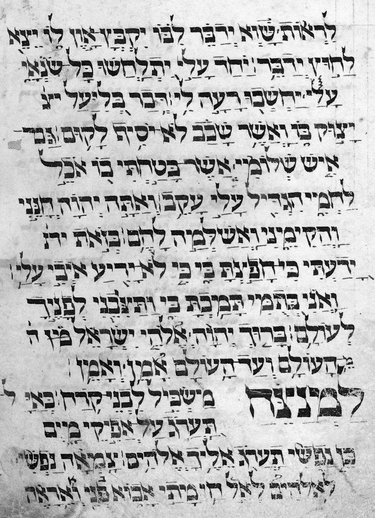 לראות שוא ידבר לבו יקבץ און לו יצא
לחוץ ידבר יחד עלי יתלחשו כל שנאי
עלי יחשבו רעה לי דבר בליעל יצ
יצוק בו ואשר שכב לא יסיף לקום גם
איש שלומי אשר בטחתי בו אכל
לחמי הגדיל עלי עקב ואתה יהוה חנני
והקימני ואשלמה להם בזאת יד
ידעתי כי חפצת בי כי לא יריע איבי עלי
ואני בתמי תמכת בי ותציבני לפניך
לעולם ברוך יהוה אלהי ישראל
מהעולם ועד העולם אמן ואמן
למנצח משכיל לבני קרח כאי
תערג על אפיקי מים
כן נפשי תערג אליך אלהים צמאה נפשי
לאלהים לאל חי מתי אבוא ואראה